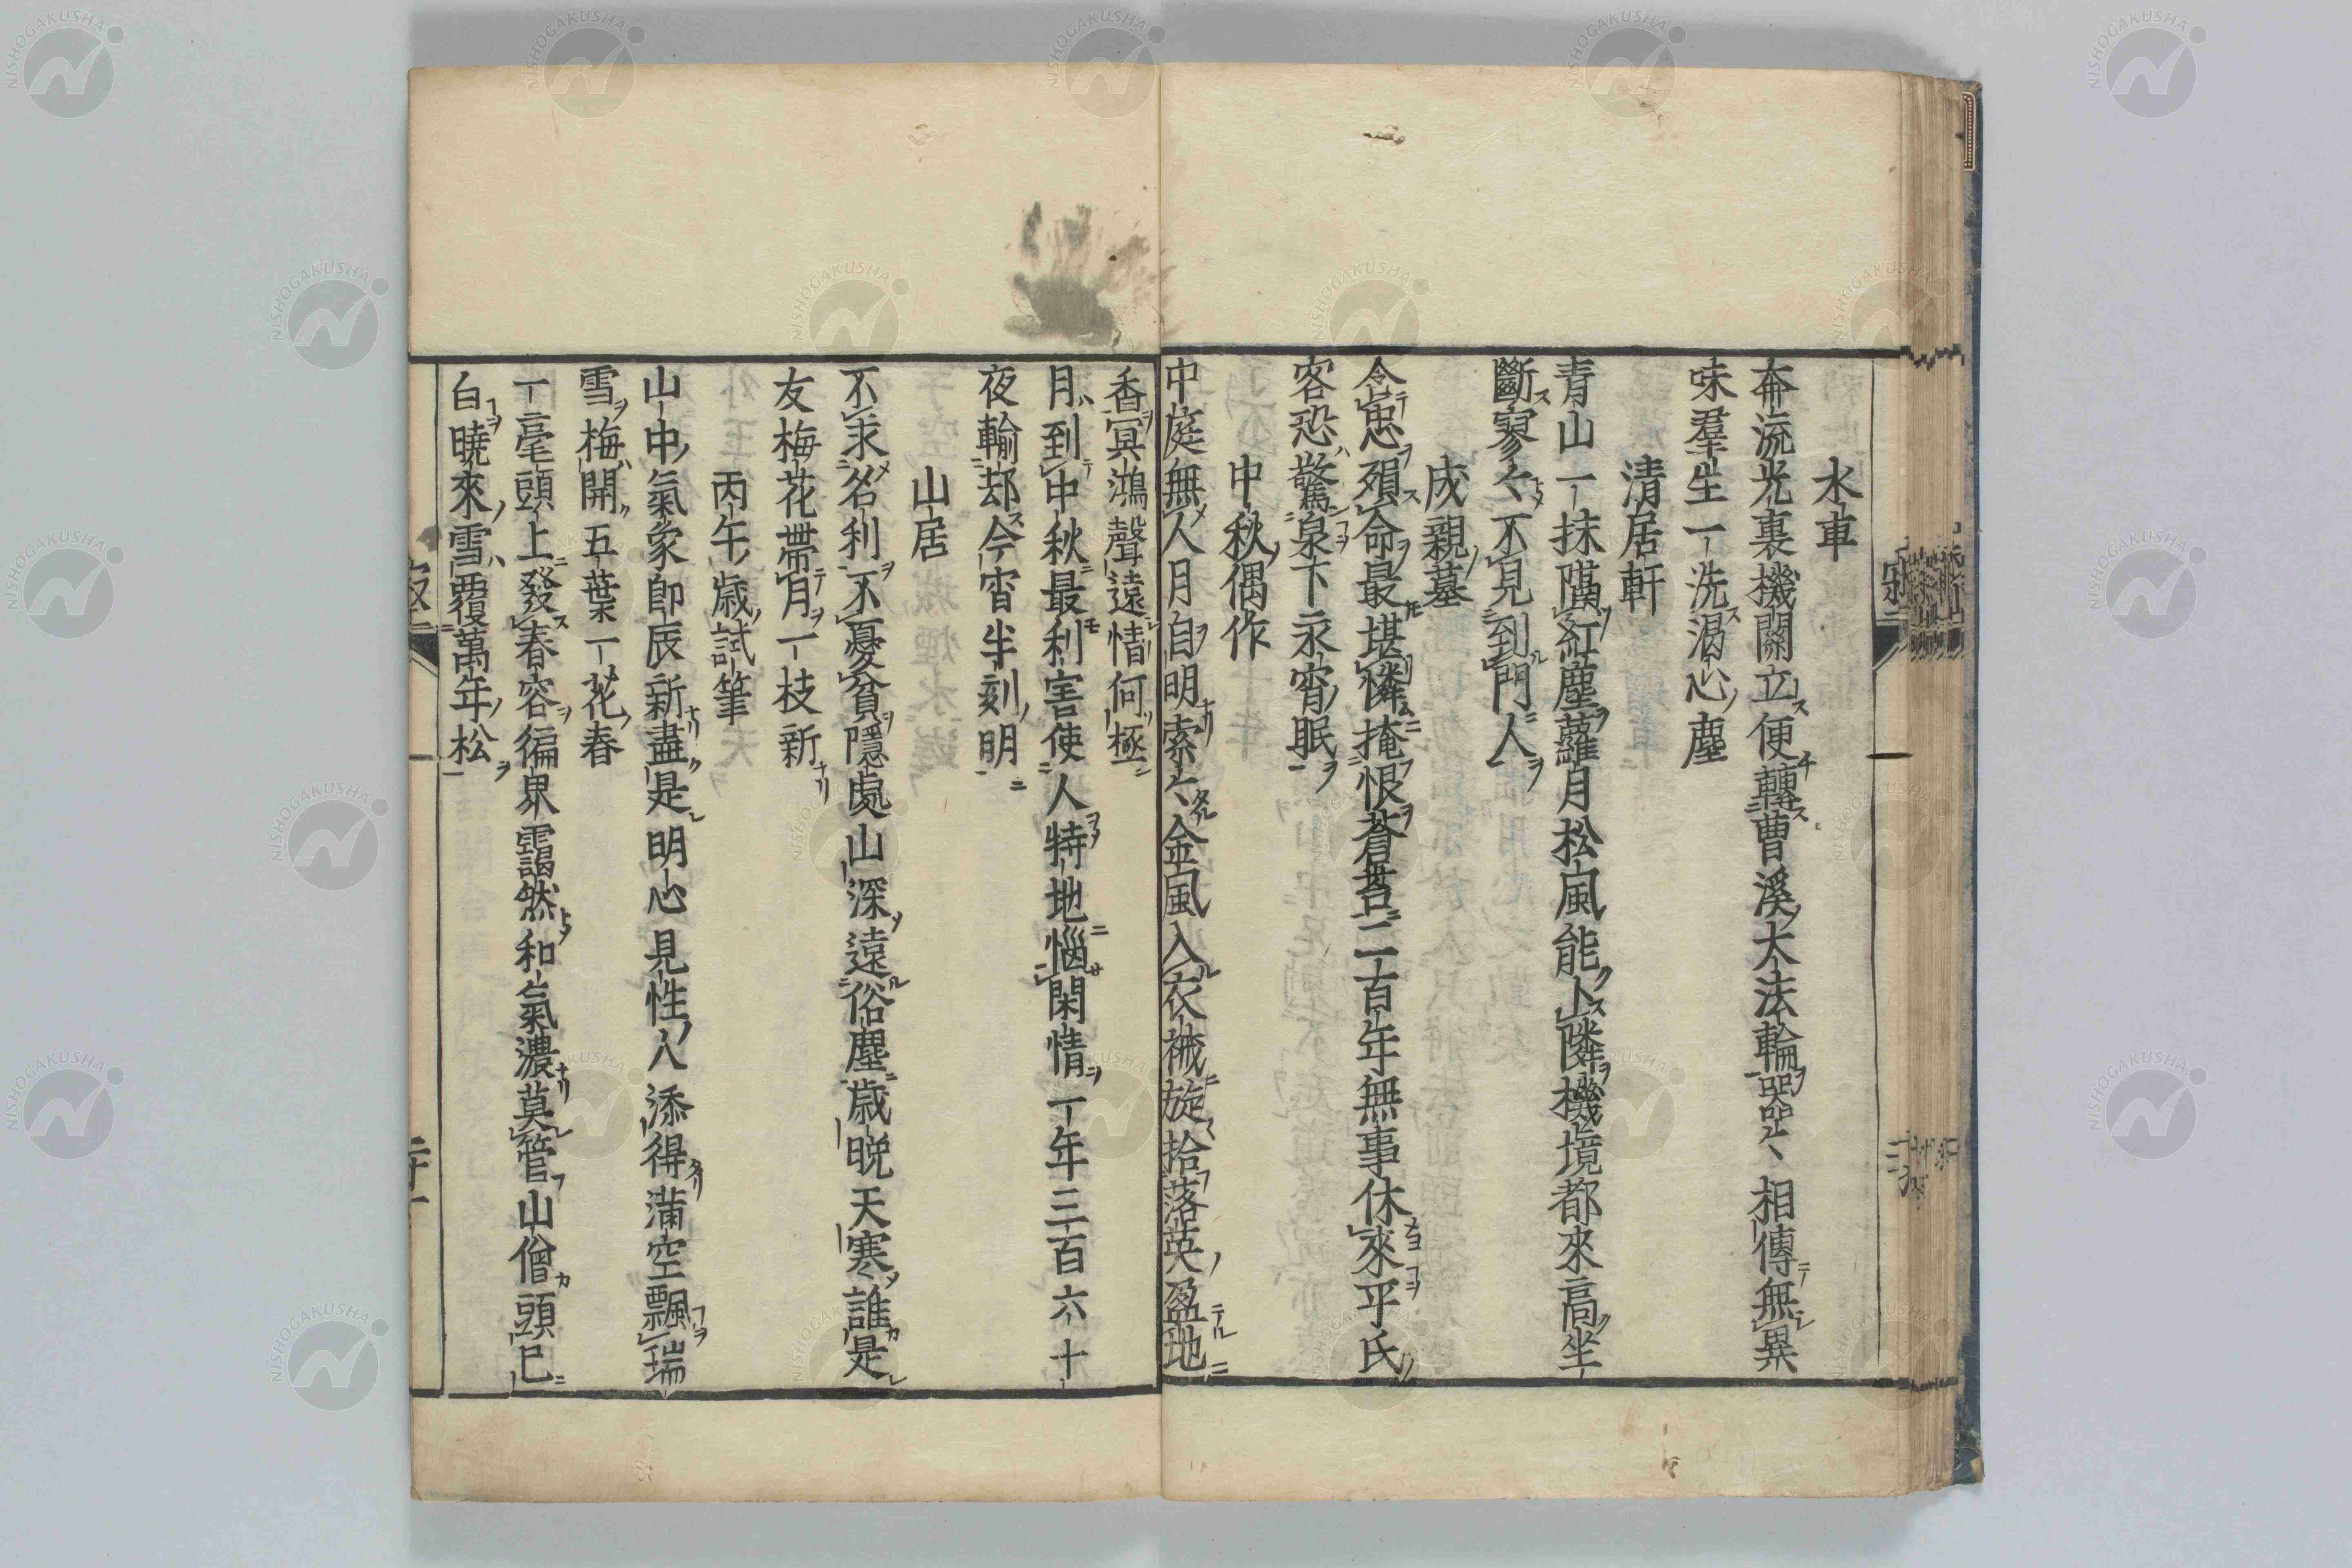 水車
奔流光裏機關立便轉曹溪大法輪哭哭々相傳無異
味羣生一洗渴心塵
清居軒
青山一抹隔紅塵蘿月松風能卜隣機境都來高坐
斷寥々不見到門人
成親墓
令忠殞命最堪憐掩恨蒼苔二百年無事休來平氏
客恐驚泉下永宵眠
中秋偶作
中庭無人月自明索々金風入衣裓旋拾落英盈地
香冥鴻聲遠情何極
月到中秋最利害使人特地惱閑情一年三百六十
夜輸却今宵半刻明
山居
不求名利不憂貧隱處山深遠俗塵歲晩天寒誰是
友梅花帶月一枝新
丙午歲試筆
山中氣象卽辰新盡是明心見性人添得滿空飄瑞
雪梅開五葉一花春
一毫頭上發春容徧界靄然和氣濃莫管山僧頭已
白曉來雪覆萬年松
NISHOGAKUSHA